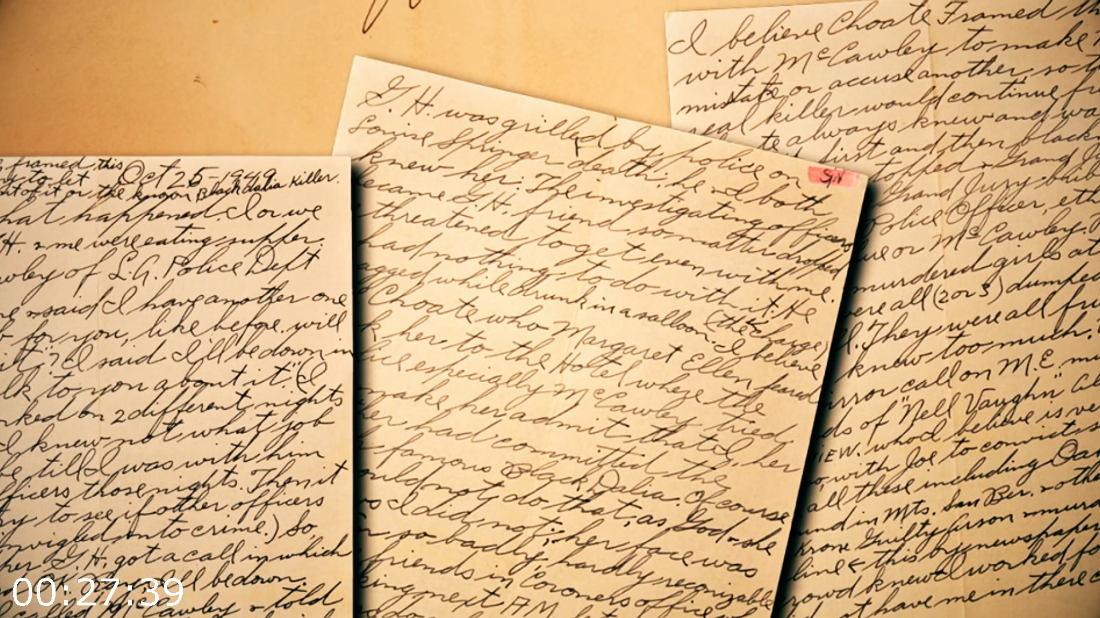 framed this
Oct 25-1949
to let
of it or the known Black Dalia Killer.
hat happened. I or we
H. & me were eating supper.
wley of L.A. Police Dept
said I have another one
for you, like before, will
it? I said I'll be down in
lk to you about it. (I
rked on 2 different nights
I knew not what job
till I was with him
fficers those nights. Then it
ry to see if other officers
nvigled into crime.) So
her G.H. got a call in which
ll be down.
called McCawley & told
G.H. was grilled by police on
Louise Springer death, he & both
knew her. The investigating officer
became G.H. friend so matter dropped
threatened to get even with me.
had nothing to do with it. He
agged while drunk in a saloon. (the charge)
Choate who Margaret Ellen feared I believe
k her to the Hotel where the
lice especially McCawley tried
make her admit that I, her
er had committed the
famous Black Dalia. Of course
ould not do that, as God & she
s I did not; her face was
so badly, hardly recognizable
friends in Coroner's office
king next A.M.
I believe Choate Framed th
with McCawley to make
mistake or accuse another, so t
real killer would continue fr
te always knew and wa
first and then black
topped & Grand J
Grand Jury bribe
Police Officer, eth
ue or McCawley.
murdered girls at
ere all (2 or 3) dumped
l. They were all fri
knew too much.
rror call on M.E. mi
ds of "Nell Vaughn"
EW. who I believe is ve
o, with Joe to convict s
all these including Dan
nd in Mts. San Ber. & othe
wrong Guilty person & murd
line & this by newspaper
rowd knew I worked fo
t have me in there
SgN
00:27:39